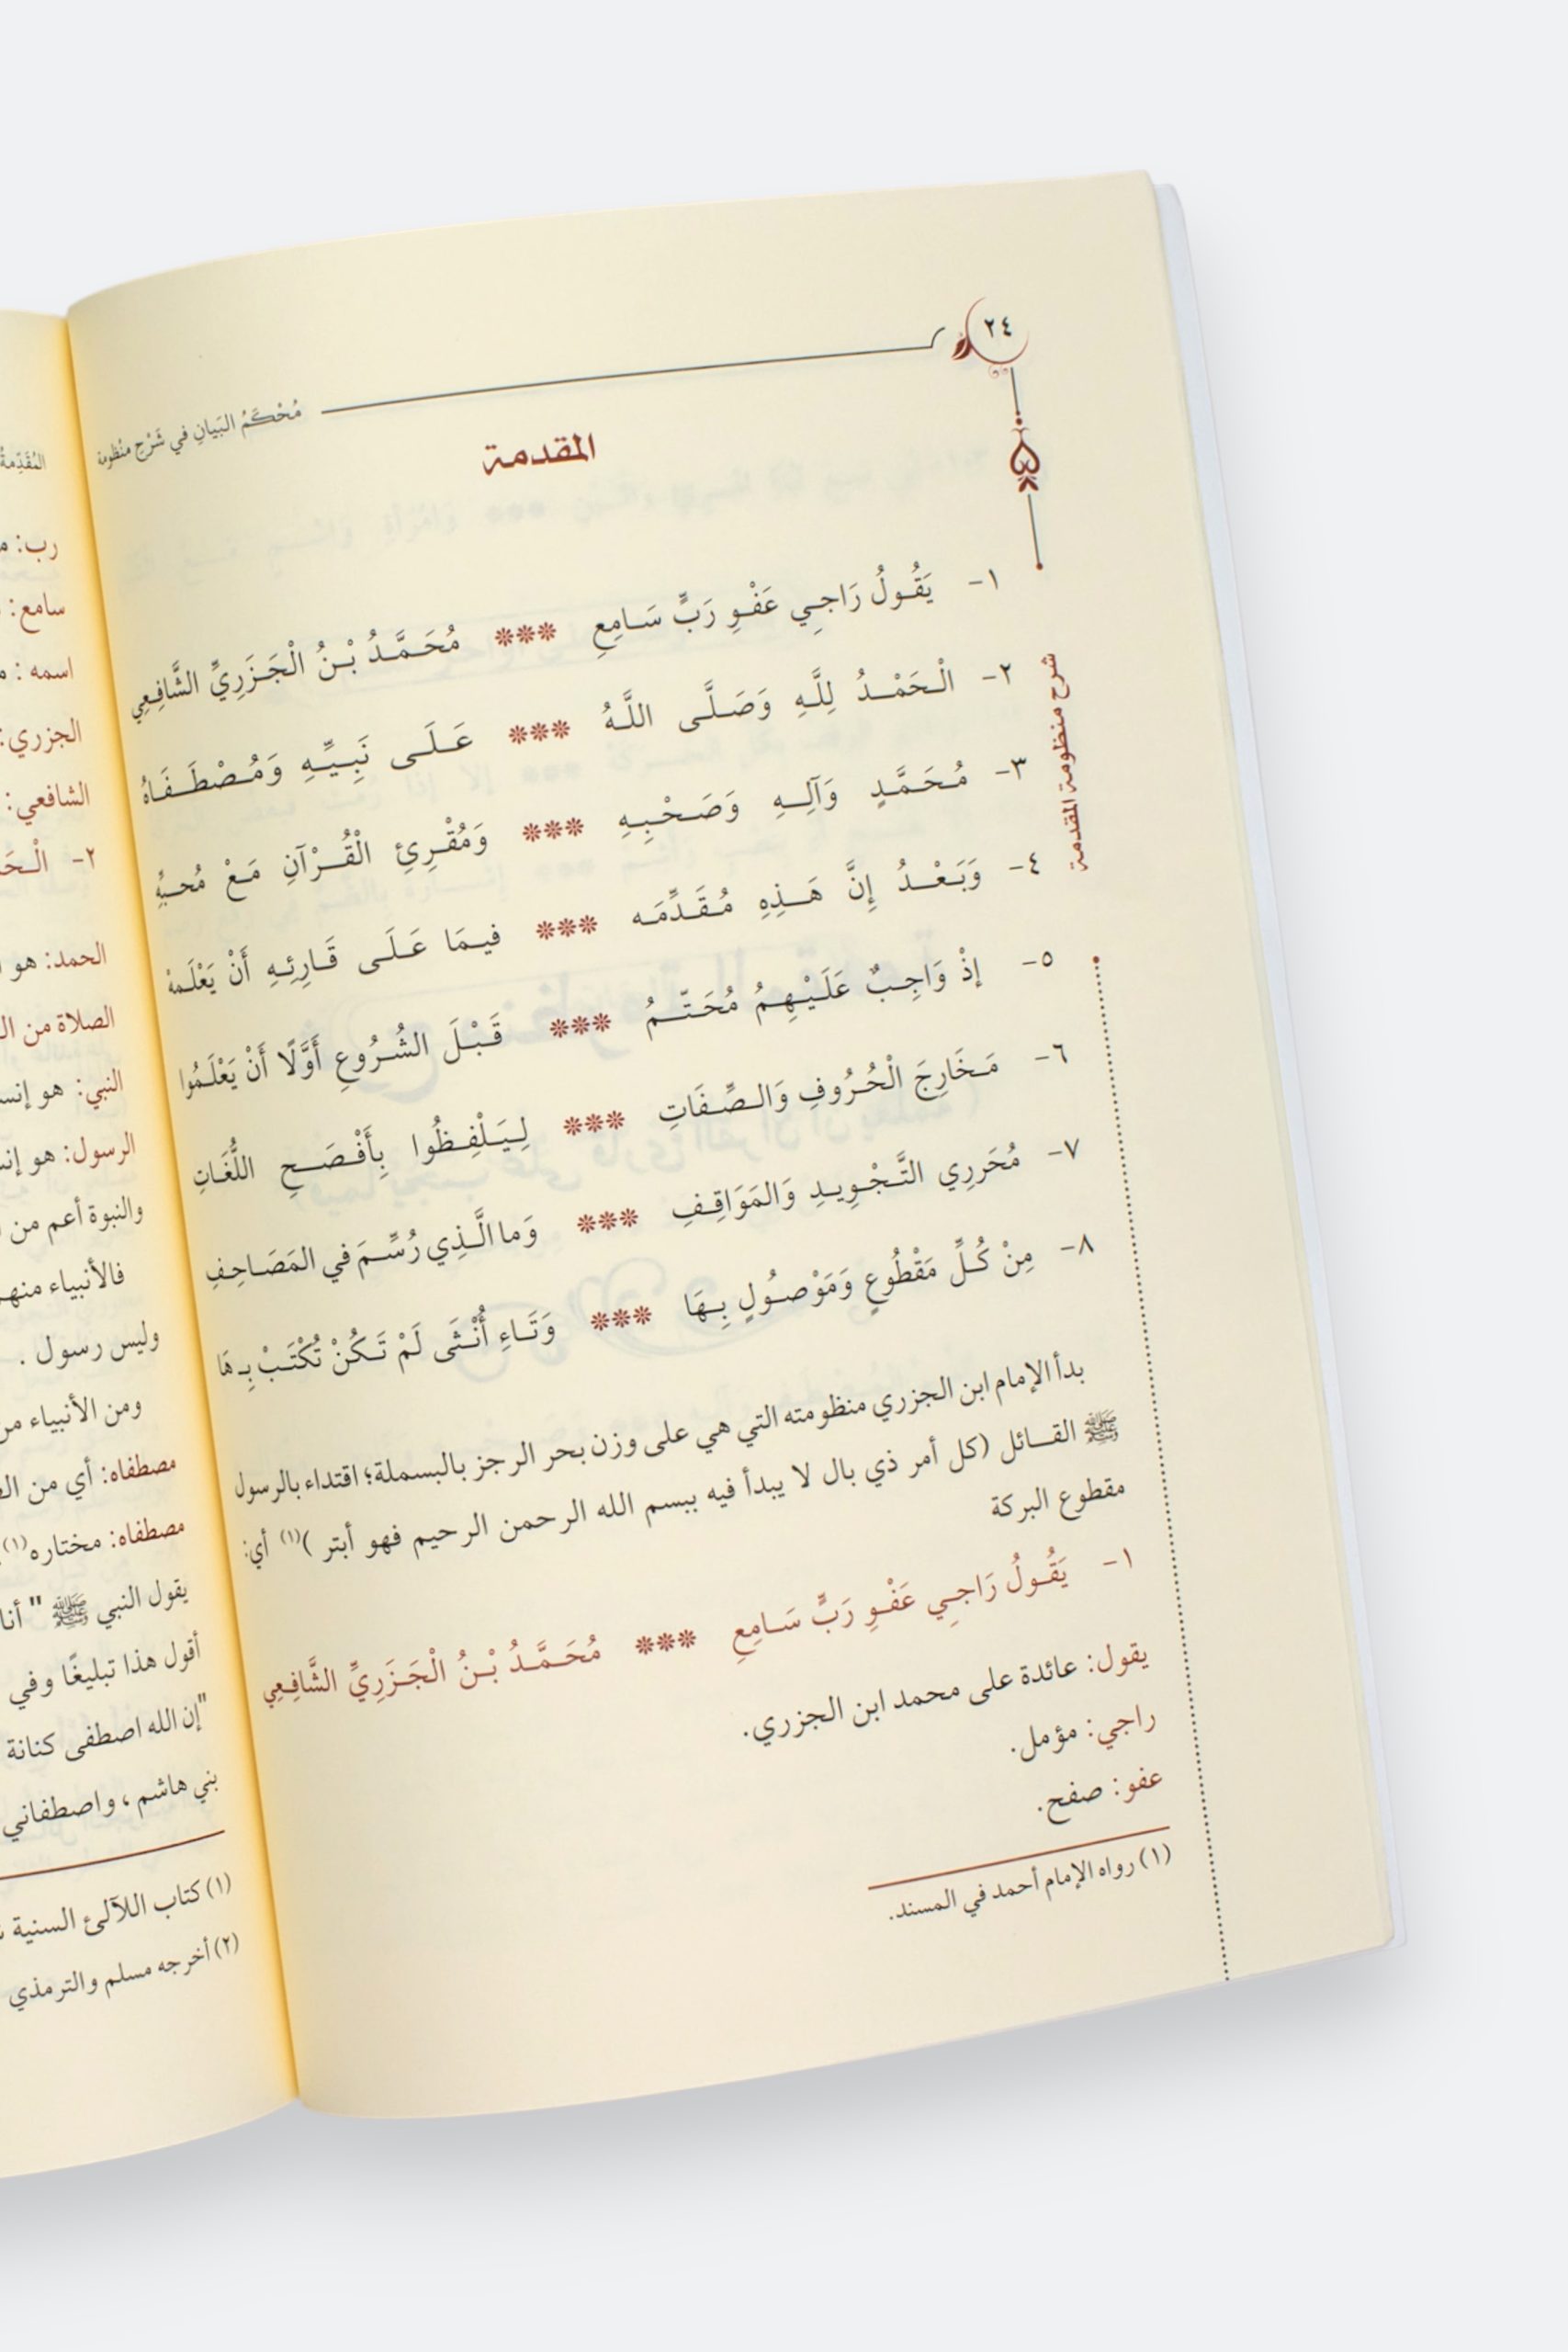 ٢٤
مُحْكَمُ البَيَانِ في شَرْحِ منْظومة
المقدمة
١- يَقُولُ رَاجِي عَفْوِ رَبٍّ سَامِعِ *** مُحَمَّدُ بْنُ الْجَزَرِيِّ الشَّافِعِي
٢- الْحَمْدُ لِلَّهِ وَصَلَّى اللَّهُ *** عَلَى نَبِيِّهِ وَمُصْطَفَاهُ
٣- مُحَمَّدٍ وَآلِهِ وَصَحْبِهِ *** وَمُقْرِئِ الْقُرْآنِ مَعْ مُحبِّهِ
٤- وَبَعْدُ إِنَّ هَذِهِ مُقَدِّمَه *** فيمَا عَلَى قَارِئِهِ أَنْ يَعْلَمهْ
٥- إذْ وَاجِبٌ عَلَيْهِمُ مُحَتَّمُ *** قَبْلَ الشُّرُوعِ أَوَّلًا أَنْ يَعْلَمُوا
٦- مَخَارِجَ الْحُرُوفِ وَالصِّفَاتِ *** لِيَلْفِظُوا بِأَفْصَحِ اللُّغَاتِ
٧- مُحَررِي التَّجْوِيدِ وَالمَوَاقِفِ *** وَما الَّذِي رُسِّمَ في المَصَاحِفِ
٨- مِنْ كُلِّ مَقْطُوعٍ وَمَوْصُولٍ بِهَا *** وَتَاءِ أُنْثَى لَمْ تَكُنْ تُكْتَبْ بِـ هَا
بدأ الإمام ابن الجزري منظومته التي هي على وزن بحر الرجز بالبسملة؛ اقتداء بالرسول
ﷺ القائل (كل أمر ذي بال لا يبدأ فيه ببسم الله الرحمن الرحيم فهو أبتر )(١) أي:
مقطوع البركة
١- يَقُولُ رَاجِي عَفْوِ رَبٍّ سَامِعِ *** مُحَمَّدُ بْنُ الْجَزَرِيِّ الشَّافِعِي
يقول: عائدة على محمد ابن الجزري.
راجي: مؤمل.
عفو: صفح.
(١) رواه الإمام أحمد في المسند.
شرح منظومة المقدمة
المُقَدِّمةُ
رب:
سامع:
اسمه :
الجزري:
الشافعي:
٢-
الحمد: هو
الصلاة من
النبي: هو
الرسول: هو
والنبوة أعم من
فالأنبياء
وليس رسول .
ومن الأنبياء
مصطفاه: أي من
مصطفاه: مختاره(١)
يقول النبي ﷺ " أنا
أقول هذا تبليغًا وفي
"إن الله اصطفى كنانة
بني هاشم ، واصطفاني
(١) كتاب اللآلئ السنية
(٢) أخرجه مسلم والترمذي